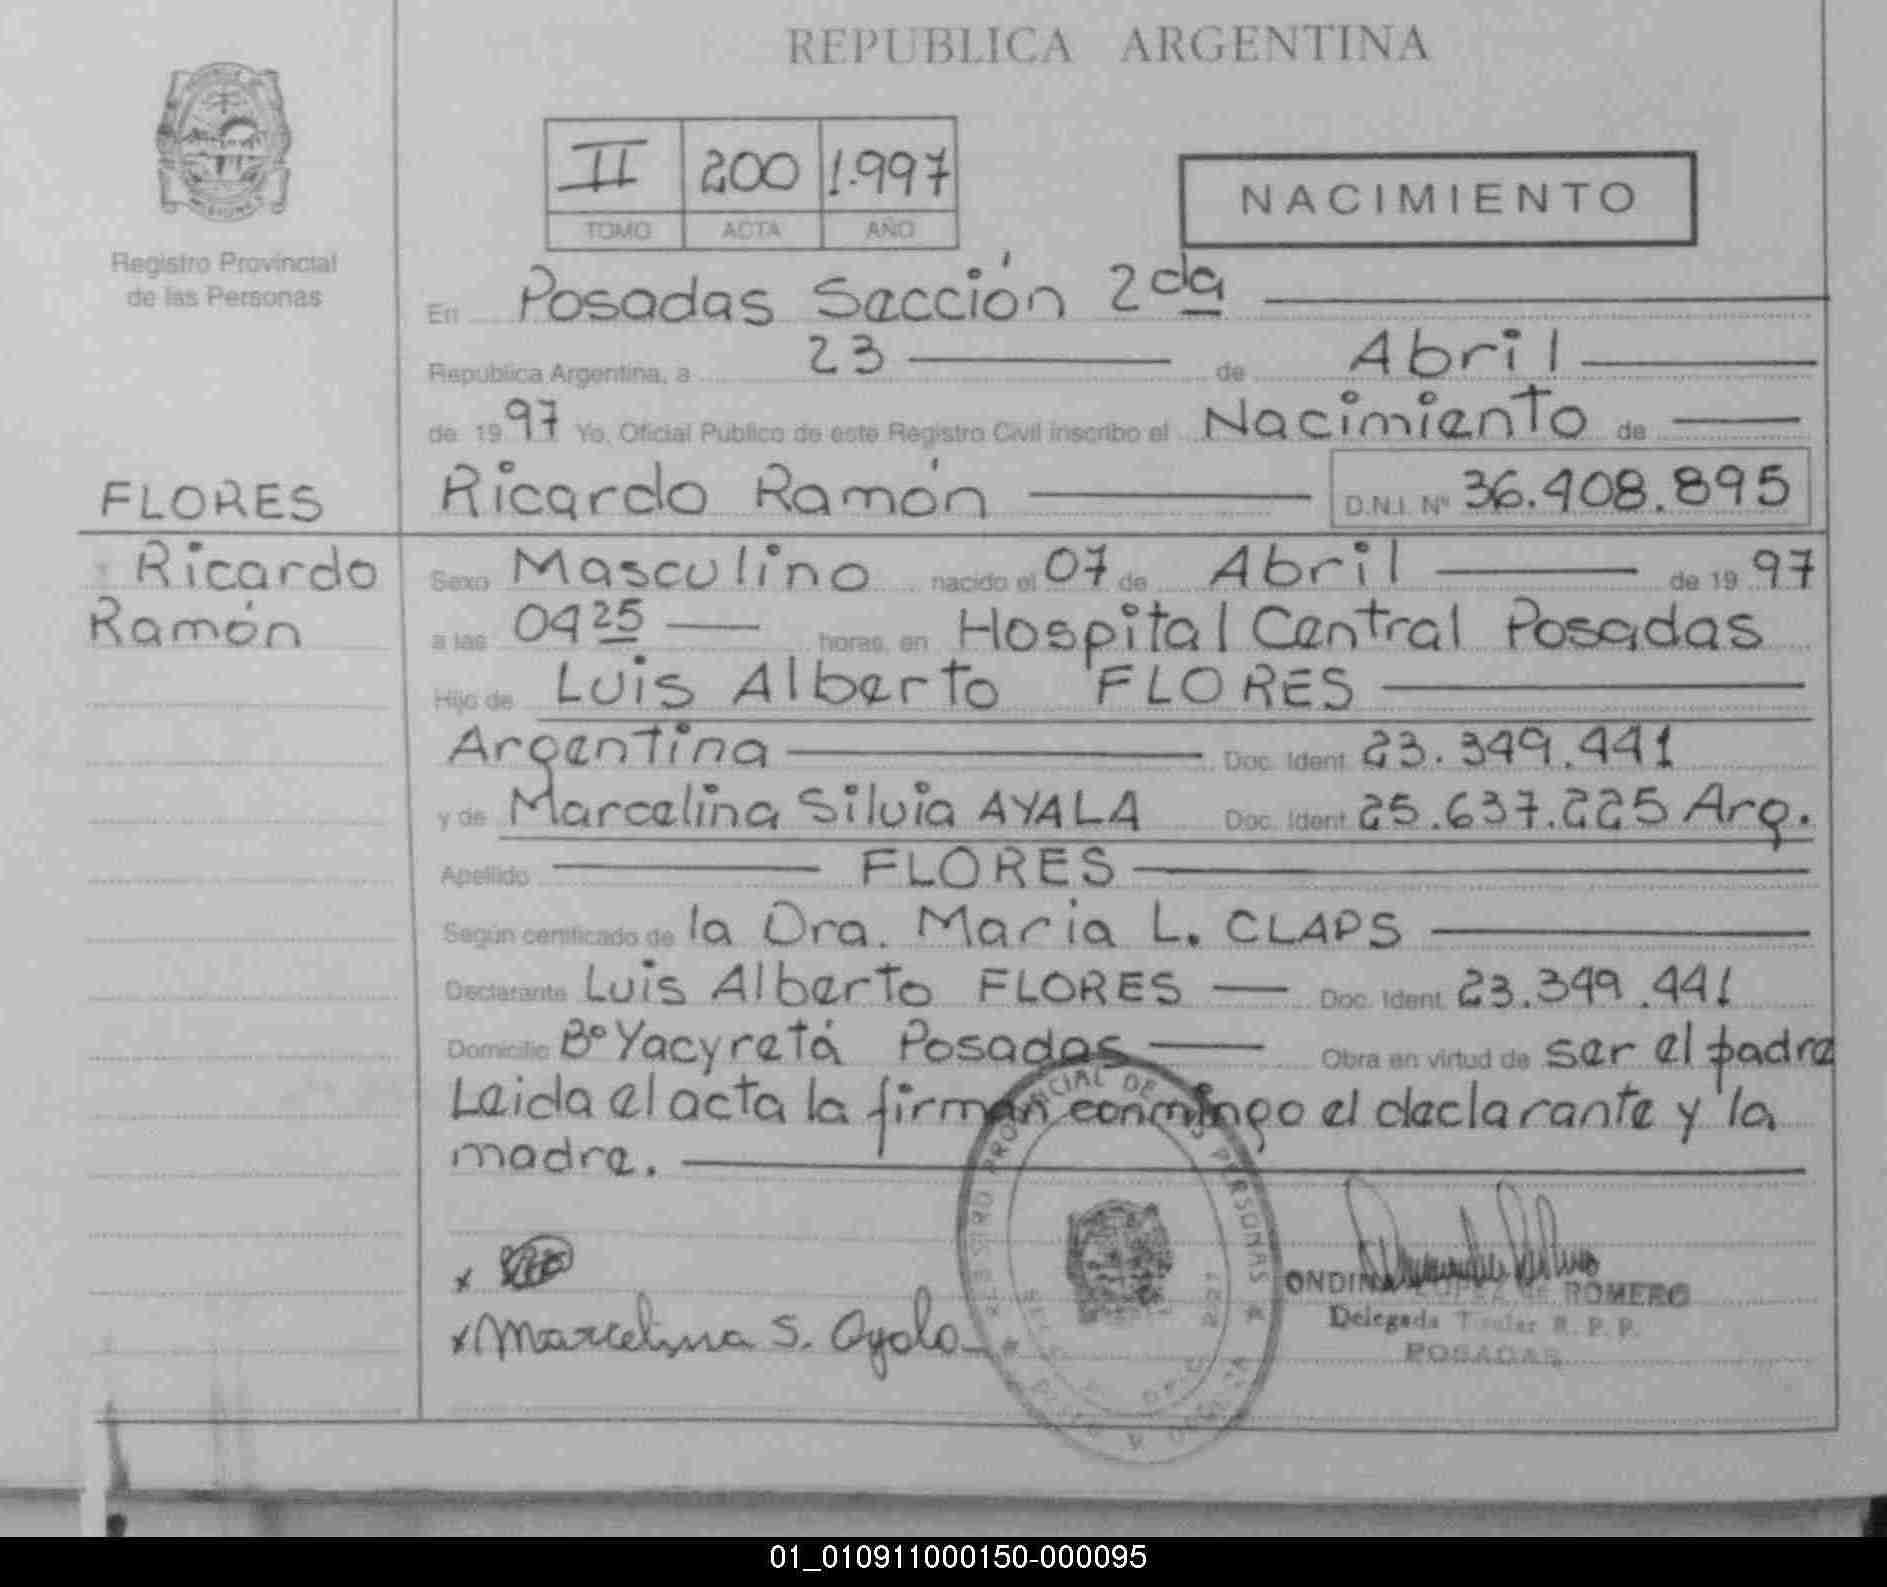 REPUBLICA ARGENTINA
II 200 1.997
TOMO ACTA AÑO
NACIMIENTO
Registro Provincial
de las Personas
En Posadas Sección 2da
Republica Argentina, a 23 de Abril
de 1997 Yo, Oficial Público de este Registro Civil inscribo el Nacimiento de
FLORES
Ricardo Ramón D.N.I. Nº 36.408.895
Ricardo
Ramón
Sexo Masculino nacido el 07 de Abril de 1997
a las 04 25 horas, en Hospital Central Posadas
Hijo de Luis Alberto FLORES
Argentina Doc. Ident. 23.349.441
y de Marcelina Silvia AYALA Doc. Ident. 25.637.225 Arg.
Apellido FLORES
Según certificado de la Dra. Maria L. CLAPS
Declarante Luis Alberto FLORES Doc. Ident. 23.349.441
Domicilio Bº Yacyretá Posadas Obra en virtud de ser el padre
Leida el acta la firman conmingo el declarante y la
madre.
REGISTRO PROVINCIAL DE LAS PERSONAS
x
x Marcelina S. Ayala
ONDINA LOPEZ de ROMERO
Delegada Titular R. P. P.
POSADAS
01_010911000150-000095